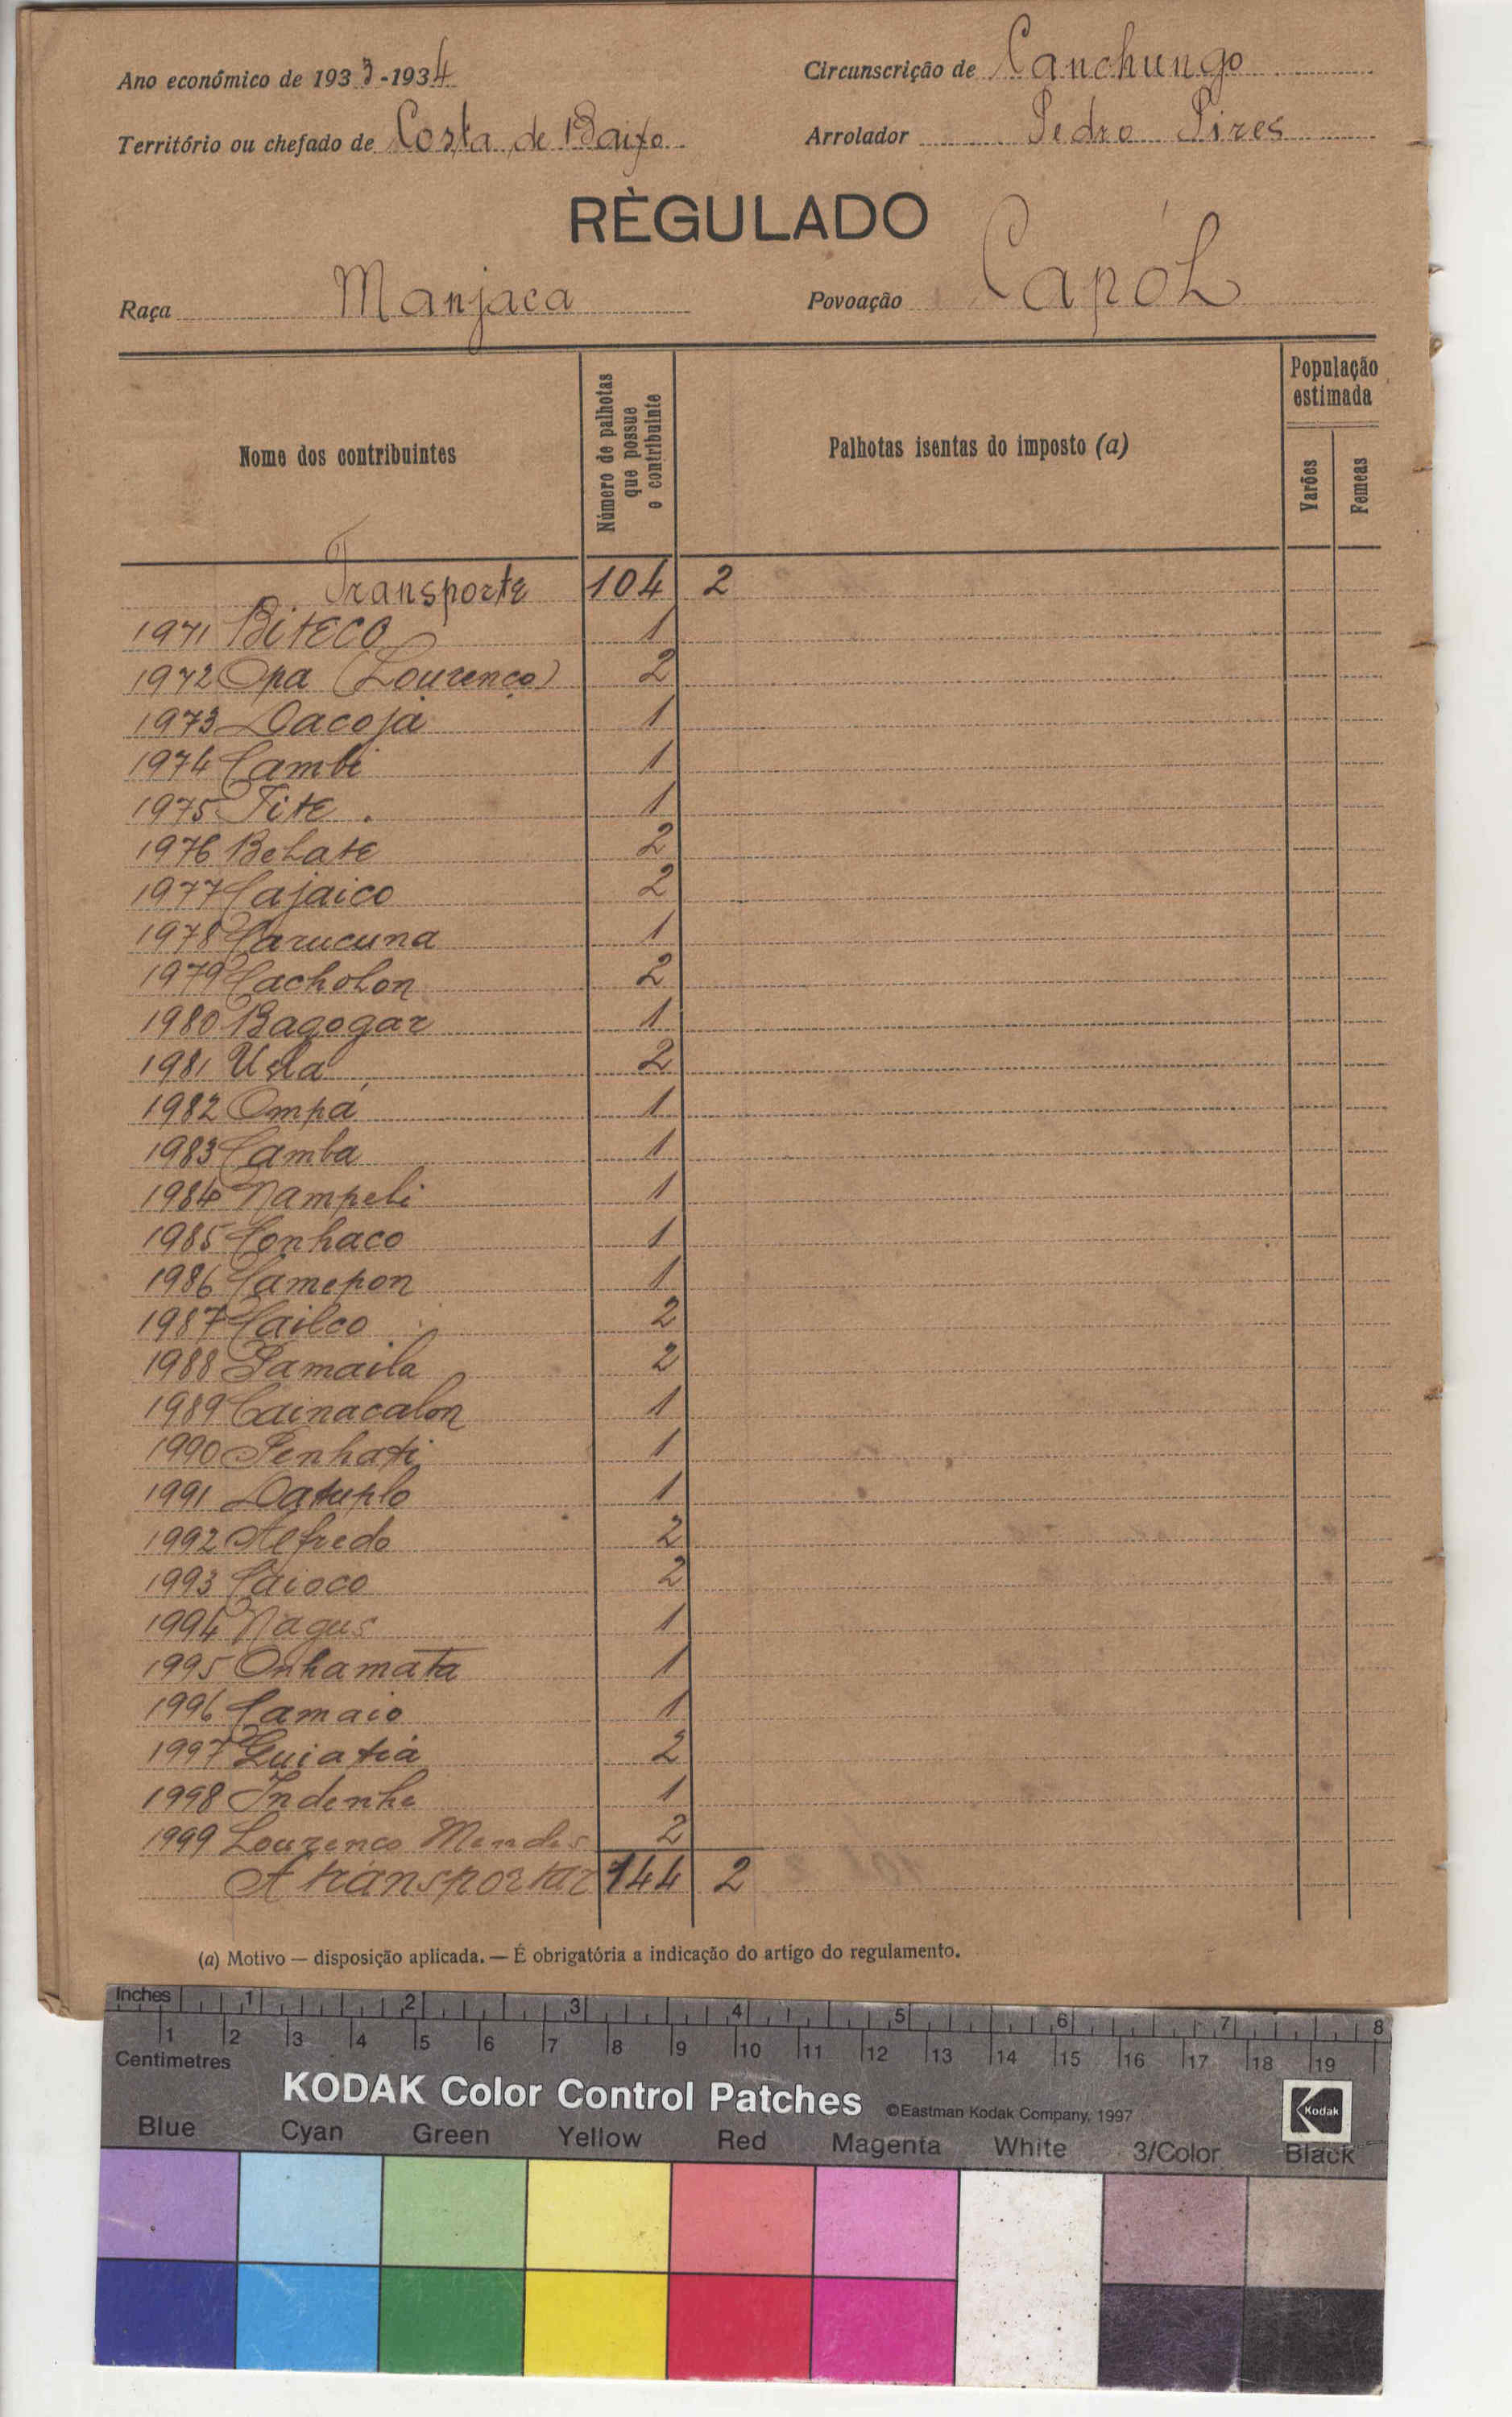 Ano económico de 1933-1934
Circunscrição de Canchungo
Território ou chefado de Costa de Baixo
Arrolador Pedro Pires
RÈGULADO
Raça Manjaca
Povoação Capól
Nome dos contribuintes
Número de palhotas que possue o contribuinte
Palhotas isentas do imposto (a)
População estimada
Varões
Femeas
Transporte 104 2
1971 Biteco 1
1972 Opa (Lourenço) 2
1973 Dacoja 1
1974 Cambi 1
1975 Tite 1
1976 Belate 2
1977 Cajaico 2
1978 Carucuna 1
1979 Cacholon 2
1980 Bagogar 1
1981 Usla 2
1982 Ompá 1
1983 Camba 1
1984 Nampeli 1
1985 Conhaco 1
1986 Camepon 1
1987 Cailco 2
1988 Pamaila 2
1989 Cainacalon 1
1990 Penhati 1
1991 Datuplo 1
1992 Alfredo 2
1993 Caioco 2
1994 Nagus 1
1995 Onhamata 1
1996 Camaio 1
1997 Guiatiá 2
1998 Indenhe 1
1999 Lourenco Mendes 2
A transportar 144 2
(a) Motivo — disposição aplicada. — É obrigatória a indicação do artigo do regulamento.
Inches 1 2 3 4 5 6 7 8
1 2 3 4 5 6 7 8 9 10 11 12 13 14 15 16 17 18 19
Centimetres
KODAK Color Control Patches ©Eastman Kodak Company, 1997 Kodak
Blue Cyan Green Yellow Red Magenta White 3/Color Black